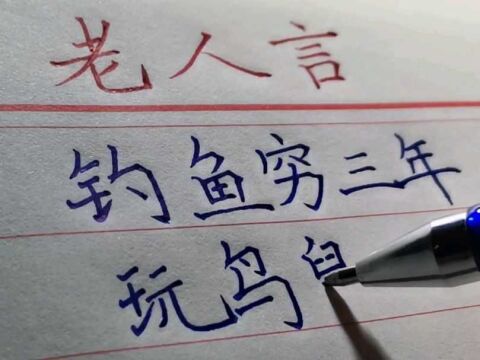 老人言
钓鱼穷三年
玩鸟